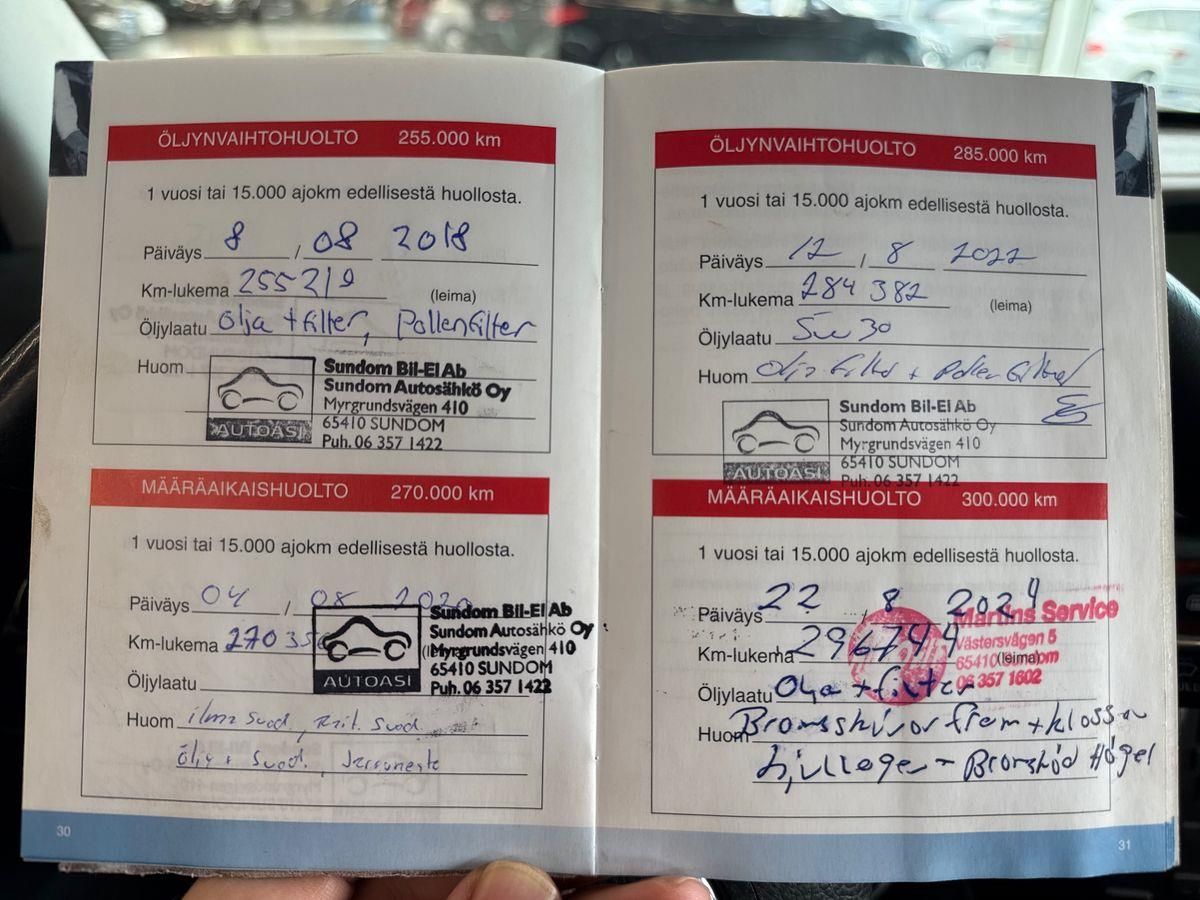 ÖLJYNVAIHTOHUOLTO 255.000 km
1 vuosi tai 15.000 ajokm edellisestä huollosta.
Päiväys 8 / 08 2018
Km-lukema 255219 (leima)
Öljylaatu olja + filter, Pollenfilter
Huom
AUTOASI
Sundom Bil-El Ab
Sundom Autosähkö Oy
Myrgrundsvägen 410
65410 SUNDOM
Puh. 06 357 1422
MÄÄRÄAIKAISHUOLTO 270.000 km
1 vuosi tai 15.000 ajokm edellisestä huollosta.
Päiväys 04 / 08 2020
Km-lukema
Öljylaatu
AUTOASI
Sundom Bil-El Ab
Sundom Autosähkö Oy
Myrgrundsvägen 410
65410 SUNDOM
Puh. 06 357 1422
Huom ilma suod, suod.
öljy + suod., Jarruneste
30
ÖLJYNVAIHTOHUOLTO 285.000 km
1 vuosi tai 15.000 ajokm edellisestä huollosta.
Päiväys 12 / 8 2022
Km-lukema 284 382 (leima)
Öljylaatu 5w30
Huom
AUTOASI
Sundom Bil-El Ab
Sundom Autosähkö Oy
Myrgrundsvägen 410
65410 SUNDOM
Puh. 06 357 1422
MÄÄRÄAIKAISHUOLTO 300.000 km
1 vuosi tai 15.000 ajokm edellisestä huollosta.
Päiväys 22 / 8 2024
Km-lukema 296744 (leima)
Öljylaatu Olja + filter
Martins Service
Västersvägen 5
65410 Sundom
06 357 1602
Huom Bromsskivor fram + klossar
Hjullager - Höger
31